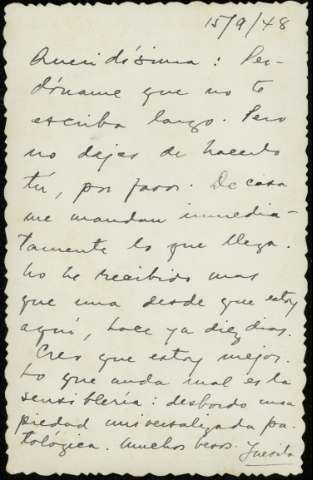 15/9/48
Queridísima: Per-
dóname que no te
escriba largo. Pero
no dejes de hacerlo
tú, por favor. De casa
me mandan inmedia-
tamente lo que llega.
No he recibido mas
que una desde que estoy
aquí, hace ya diez dias.
Creo que estoy mejor.
Lo que anda mal es la
sensiblería: desbordo una
piedad universalizada pa-
tológica. Muchos besos.